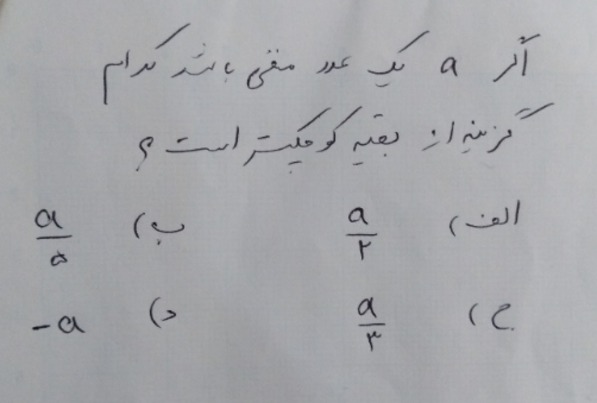 اگر a یک عدد منفی باشد کدام
گزینه از بقیه کوچکتر است؟
الف) a/۲ ب) a/۵
ج) a/۳ د) -a